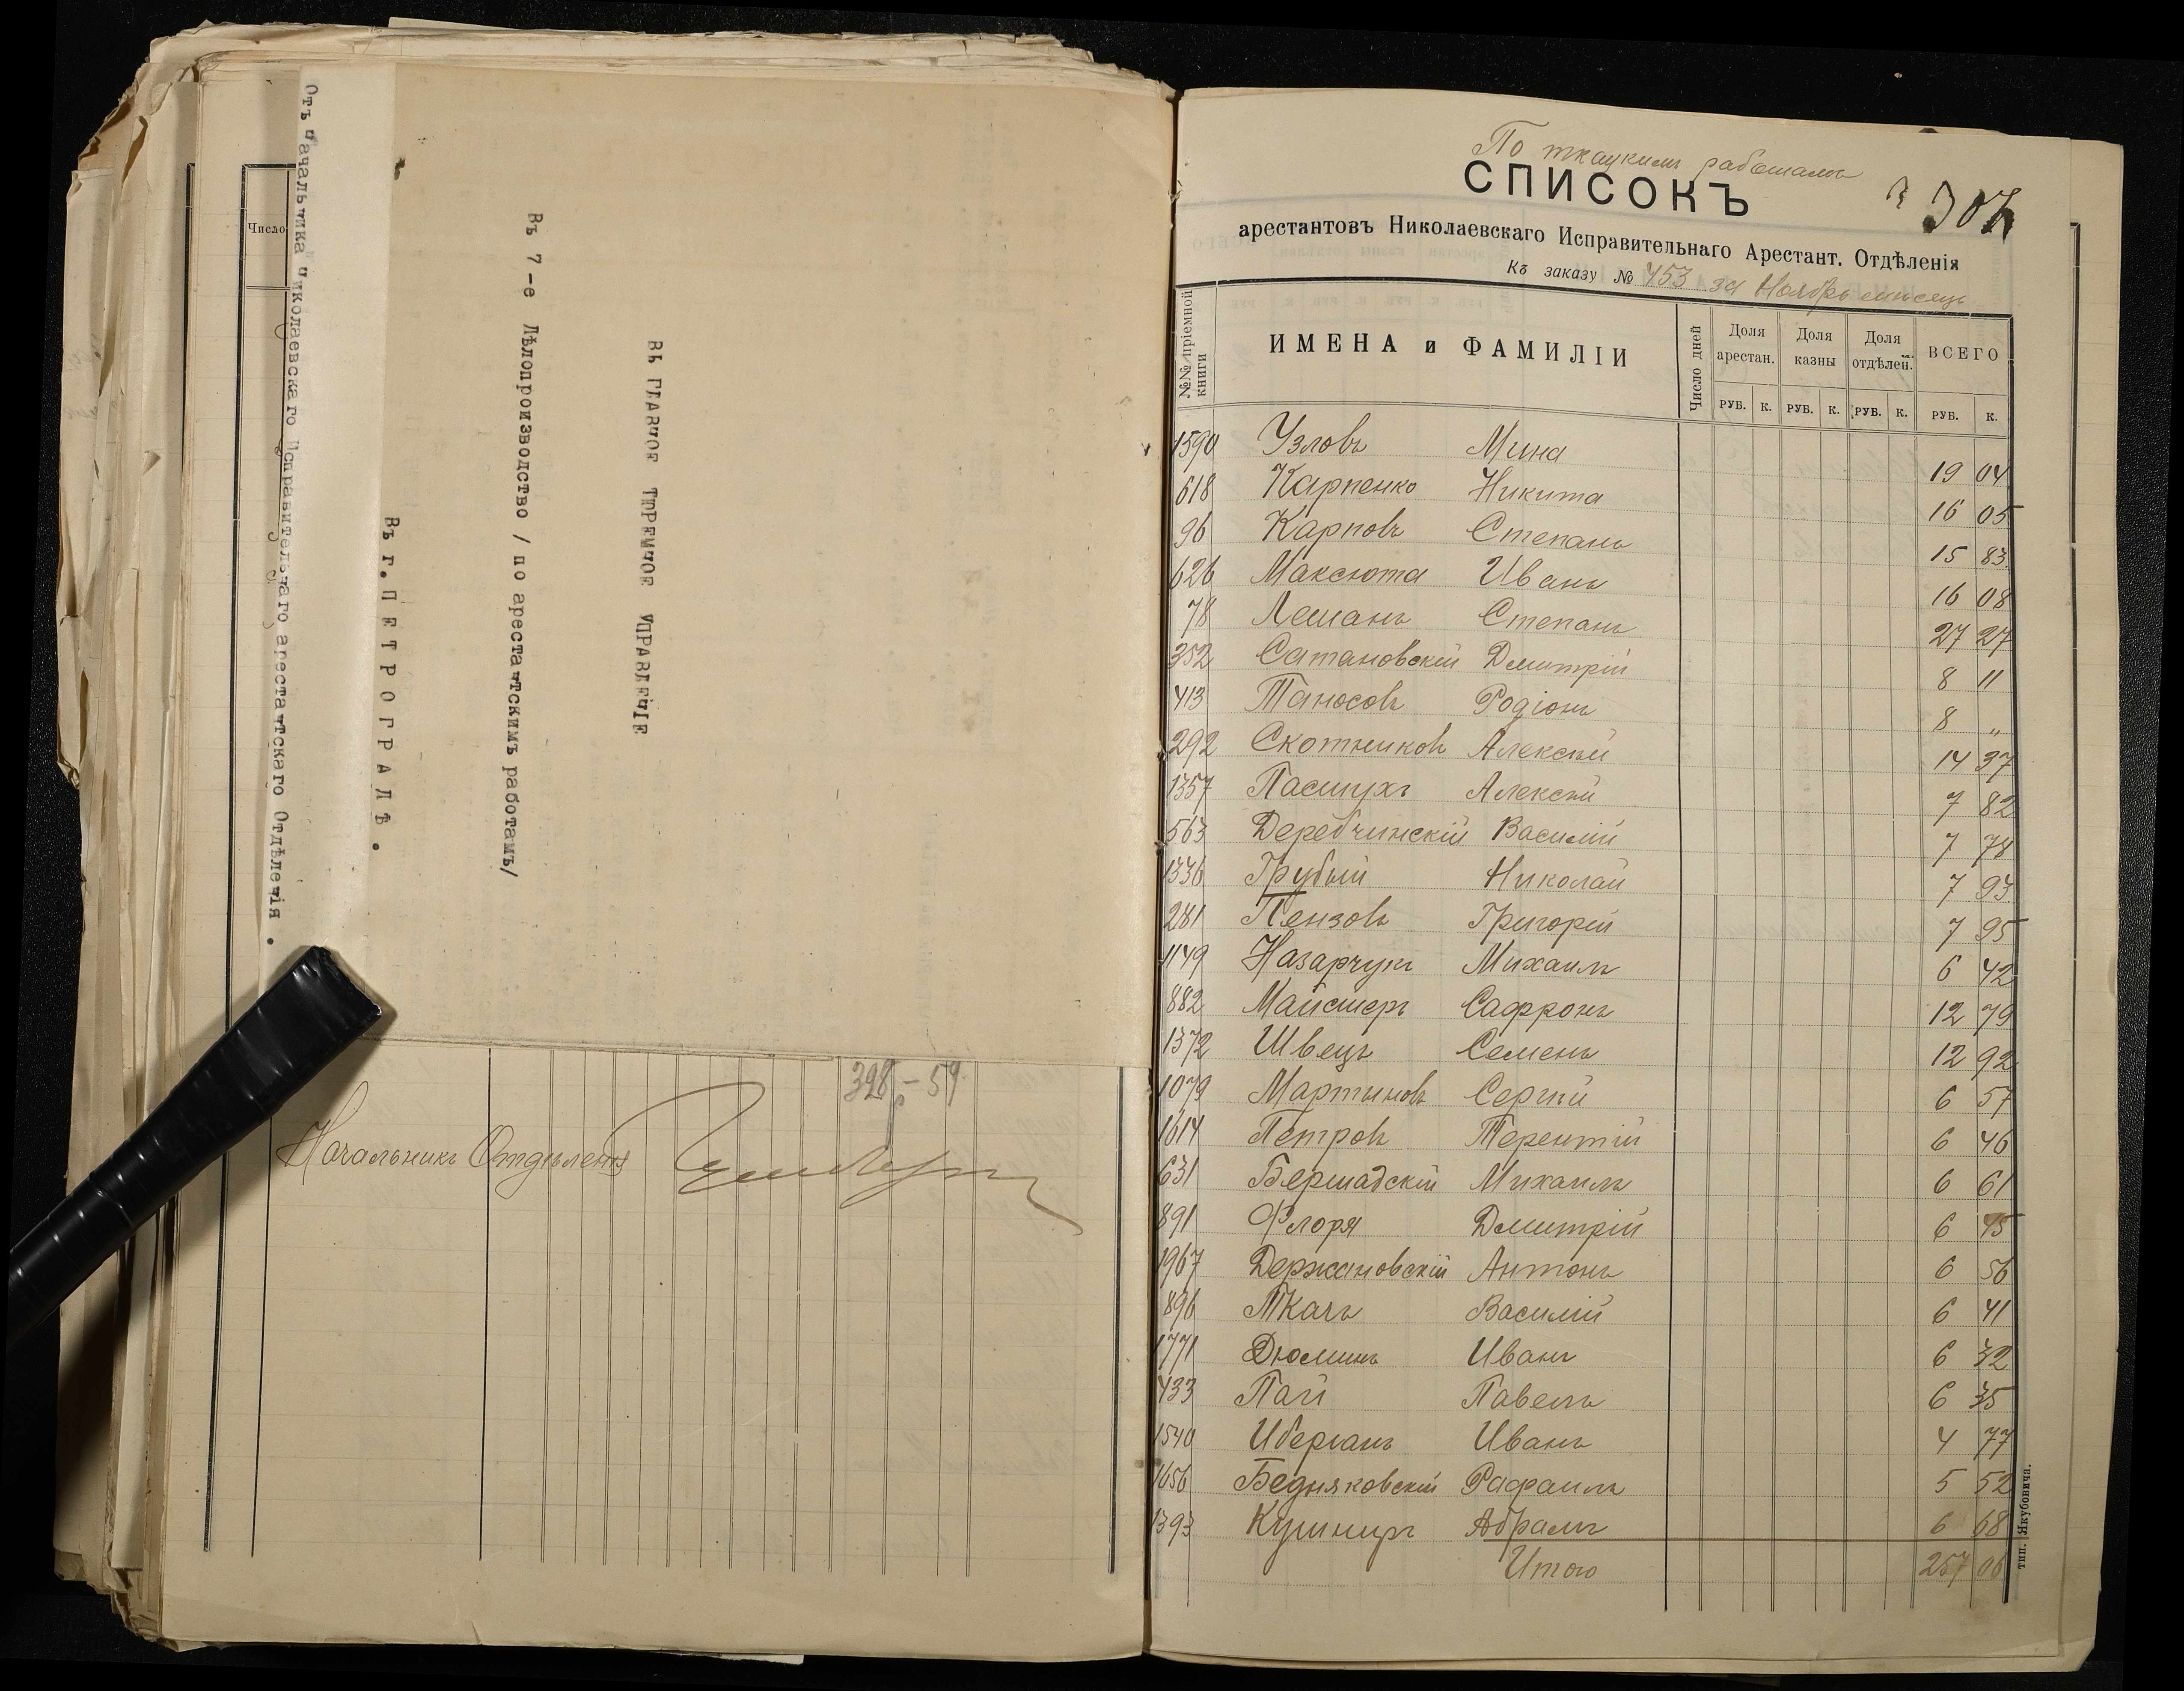 Число
Отъ Начальника Николаевскаго Исправительнаго арестантскаго Отдѣленія .
Въ г. П Е Т Р О Г Р А Д Ѣ .
Въ 7-е Дѣлопроизводство / по арестантскимъ работамъ/
ВЪ ГЛАВНОЕ ТЮРЕМНОЕ УПРАВЛЕНІЕ
398 - 59
Начальникъ Отдѣленія
По ткацкимъ работамъ
СПИСОКЪ
арестантовъ Николаевскаго Исправительнаго Арестант. Отдѣленія
Къ заказу № 453 за Ноябрь мѣсяцъ
№№ пріемной книги ИМЕНА и ФАМИЛІИ Число дней Доля арестан. Доля казны Доля отдѣлен. ВСЕГО
РУБ. К. РУБ. К. РУБ. К. РУБ. К.
1590 Узловъ Мина 19 04
618 Карпенко Никита 16 05
96 Карповъ Степанъ 15 83
626 Максюта Иванъ 16 08
78 Леманъ Степанъ 27 27
352 Сатановскій Дмитрій 8 11
413 Таносовъ Родіонъ 8 „
292 Скотниковъ Алексѣй 14 37
1357 Пастухъ Алексѣй 7 82
563 Деребчинскій Василій 7 78
1336 Грубый Николай 7 93
281 Пензовъ Григорій 7 95
1149 Назарчукъ Михаилъ 6 42
882 Майстеръ Сафронъ 12 79
1372 Швецъ Семенъ 12 92
1079 Мартыновъ Сергѣй 6 57
1614 Петровъ Терентій 6 46
631 Бершадскій Михаилъ 6 61
891 Флоря Дмитрій 6 45
1967 Держановскій Антонъ 6 56
896 Ткачъ Василій 6 41
1771 Дюминъ Иванъ 6 32
433 Пай Павелъ 6 35
1540 Иберганъ Иванъ 4 77
1656 Бедняковскій Рафаилъ 5 52
1393 Кушниръ Абрамъ 6 68
Итого 257 06
тип. Якубовича.